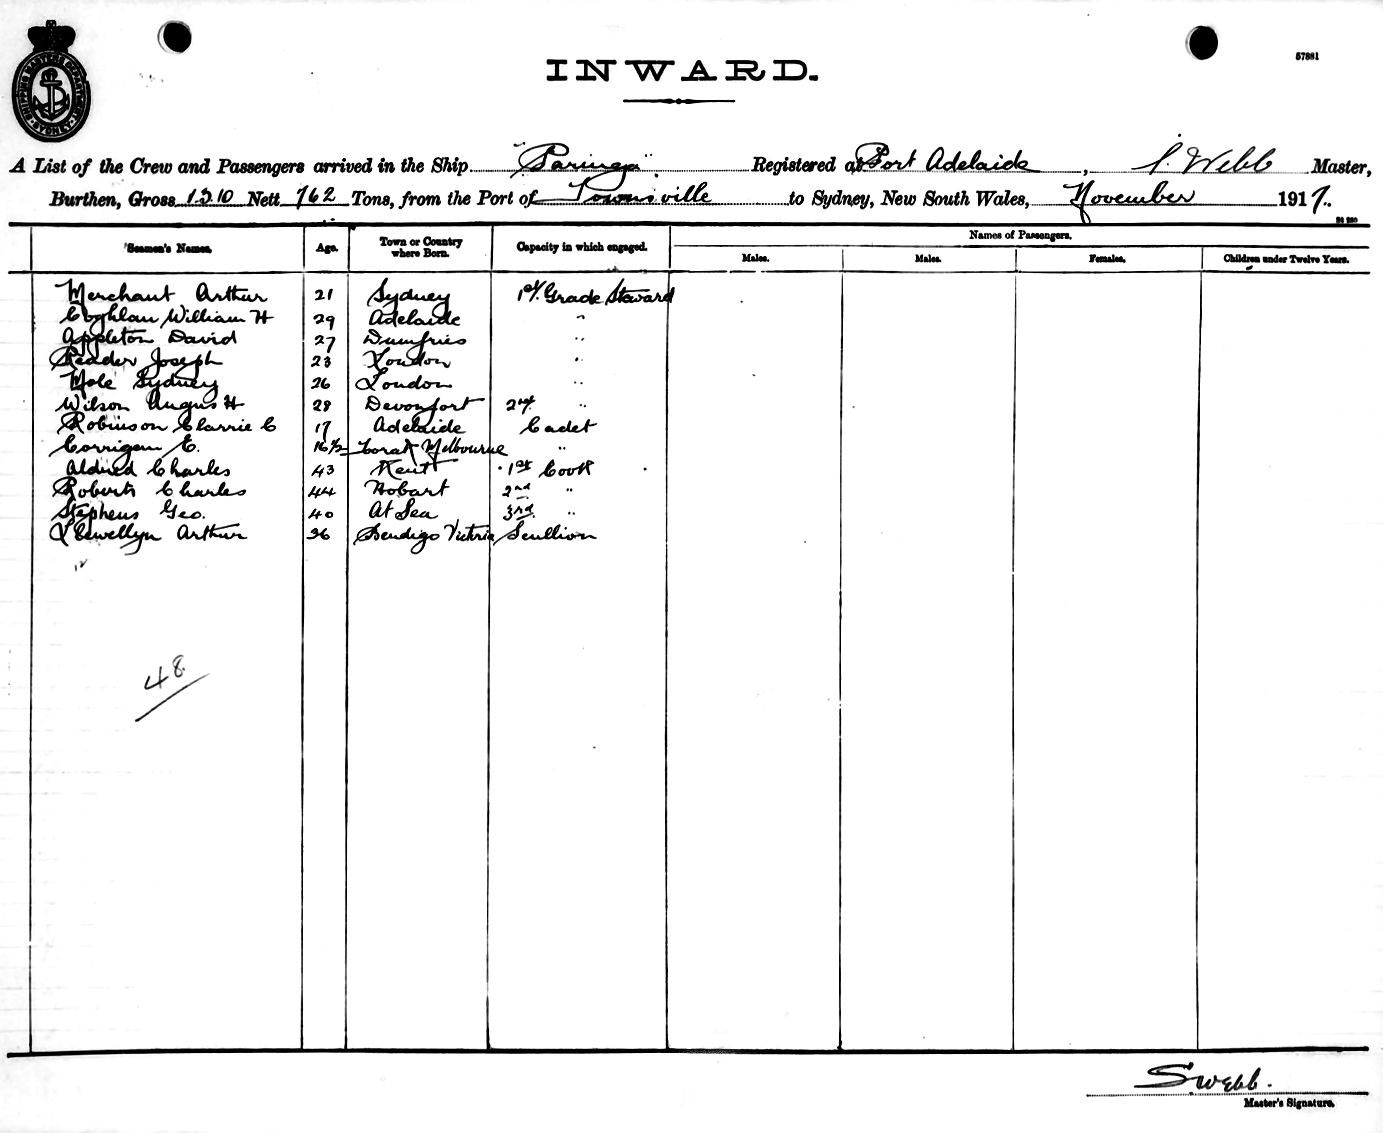 SHIPPING MASTERS DEPARTMENT SYDNEY
57881
INWARD.
A List of the Crew and Passengers arrived in the Ship "Paringa". Registered at Port Adelaide, S. Webb Master,
Burthen, Gross 1310 Nett 762 Tons, from the Port of Townsville to Sydney, New South Wales, November 1917.
Names of Passengers.
Seamen's Names. Age. Town or Country where Born. Capacity in which engaged. Males. Males. Females. Children under Twelve Years.
Merchant Arthur 21 Sydney 1st Grade Steward
Coghlan William H 29 Adelaide "
Appleton David 27 Dumfries "
Reader Joseph 23 London "
Mole Sydney 26 London "
Wilson Angus H 28 Devonport 2nd "
Robinson Clarrie C 17 Adelaide Cadet
Corrigan E. 16½ Melbourne "
Aldred Charles 43 Kent 1st Cook
Roberts Charles 44 Hobart 2nd "
Stephens Geo. 40 At Sea 3rd "
Llewellyn Arthur 36 Bendigo Victoria Scullion
12
48
S Webb.
Master's Signature.